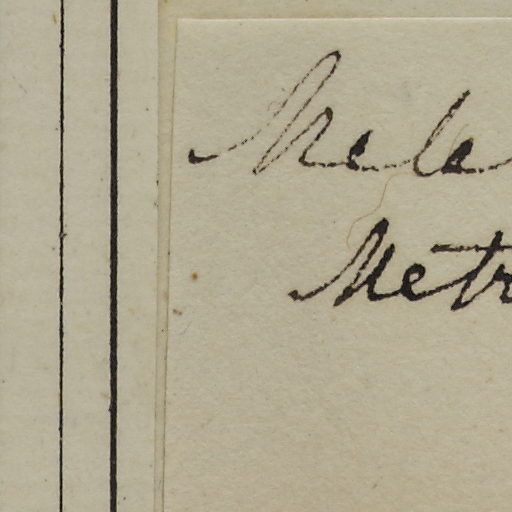 Mele
Metr